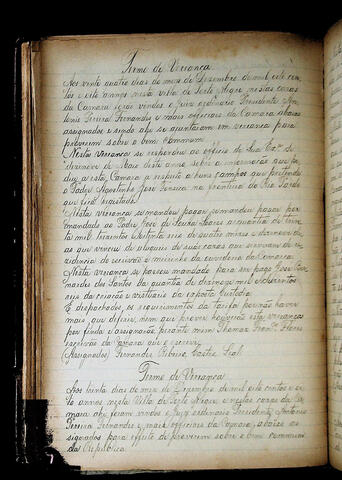 Termo de Vereança
Aos vinte quatro dias do mes de Dezembro de mil oito cen-
tos e oito annos nesta villa de Porto Alegre nestas casas
da Camara forão vindos o Juiz ordinario Presidente An-
tonio Pereira Fernandes e mais officiaes da Camara abaixo
assignados e sendo ahi se ajuntarão em vereança para
proverem sobre o bem commum.
Nesta Vereança se respondeu ao officio de Sua Exª de
dezenove de deste anno sobre a informação que pe-
diu a esta Camara a respeito a huns campos que pretende
o Padre Agostinho José na fronteira do Rio Pardo
que fica registado
Nesta vereança se mandou pagar
mandado ao Padre José de Soares a quantia de trin-
ta mil trezentos e trinta reis de quatro mezes e dezenove di-
as que venceu de aluguer de suas casas que servirão de re-
zidencia do escrivão e meirinho da ouvedoria da Comarca
Nesta vereança se passou mandado para ser pago José
nardes dos Santos da quantia de dezenove mil e oitocentos
reis da criação e vistiario da exposta
E despachados os requerimentos da tarifa e não haver
mais que deferir, nem que prover houverão esta vereança
por finda e assignarão perante mim Thomaz Franco Flores
escrivão da Camara que o escrevi
(Assignados) Fernandes Ribeiro, Castro Leal
Termo de Vereança
Aos trinta dias do mez de Dezembro de mil oito centos e oi-
to annos nesta Villa de Porto Alegre e nestas cazas da Ca-
mara ahi foram vindos o Juiz ordinario Presidente Antonio
Pereira Fernandes e mais officiaes da Camara, abaixo as-
signados para effeito de proverem sobre o bem commum
da Republica